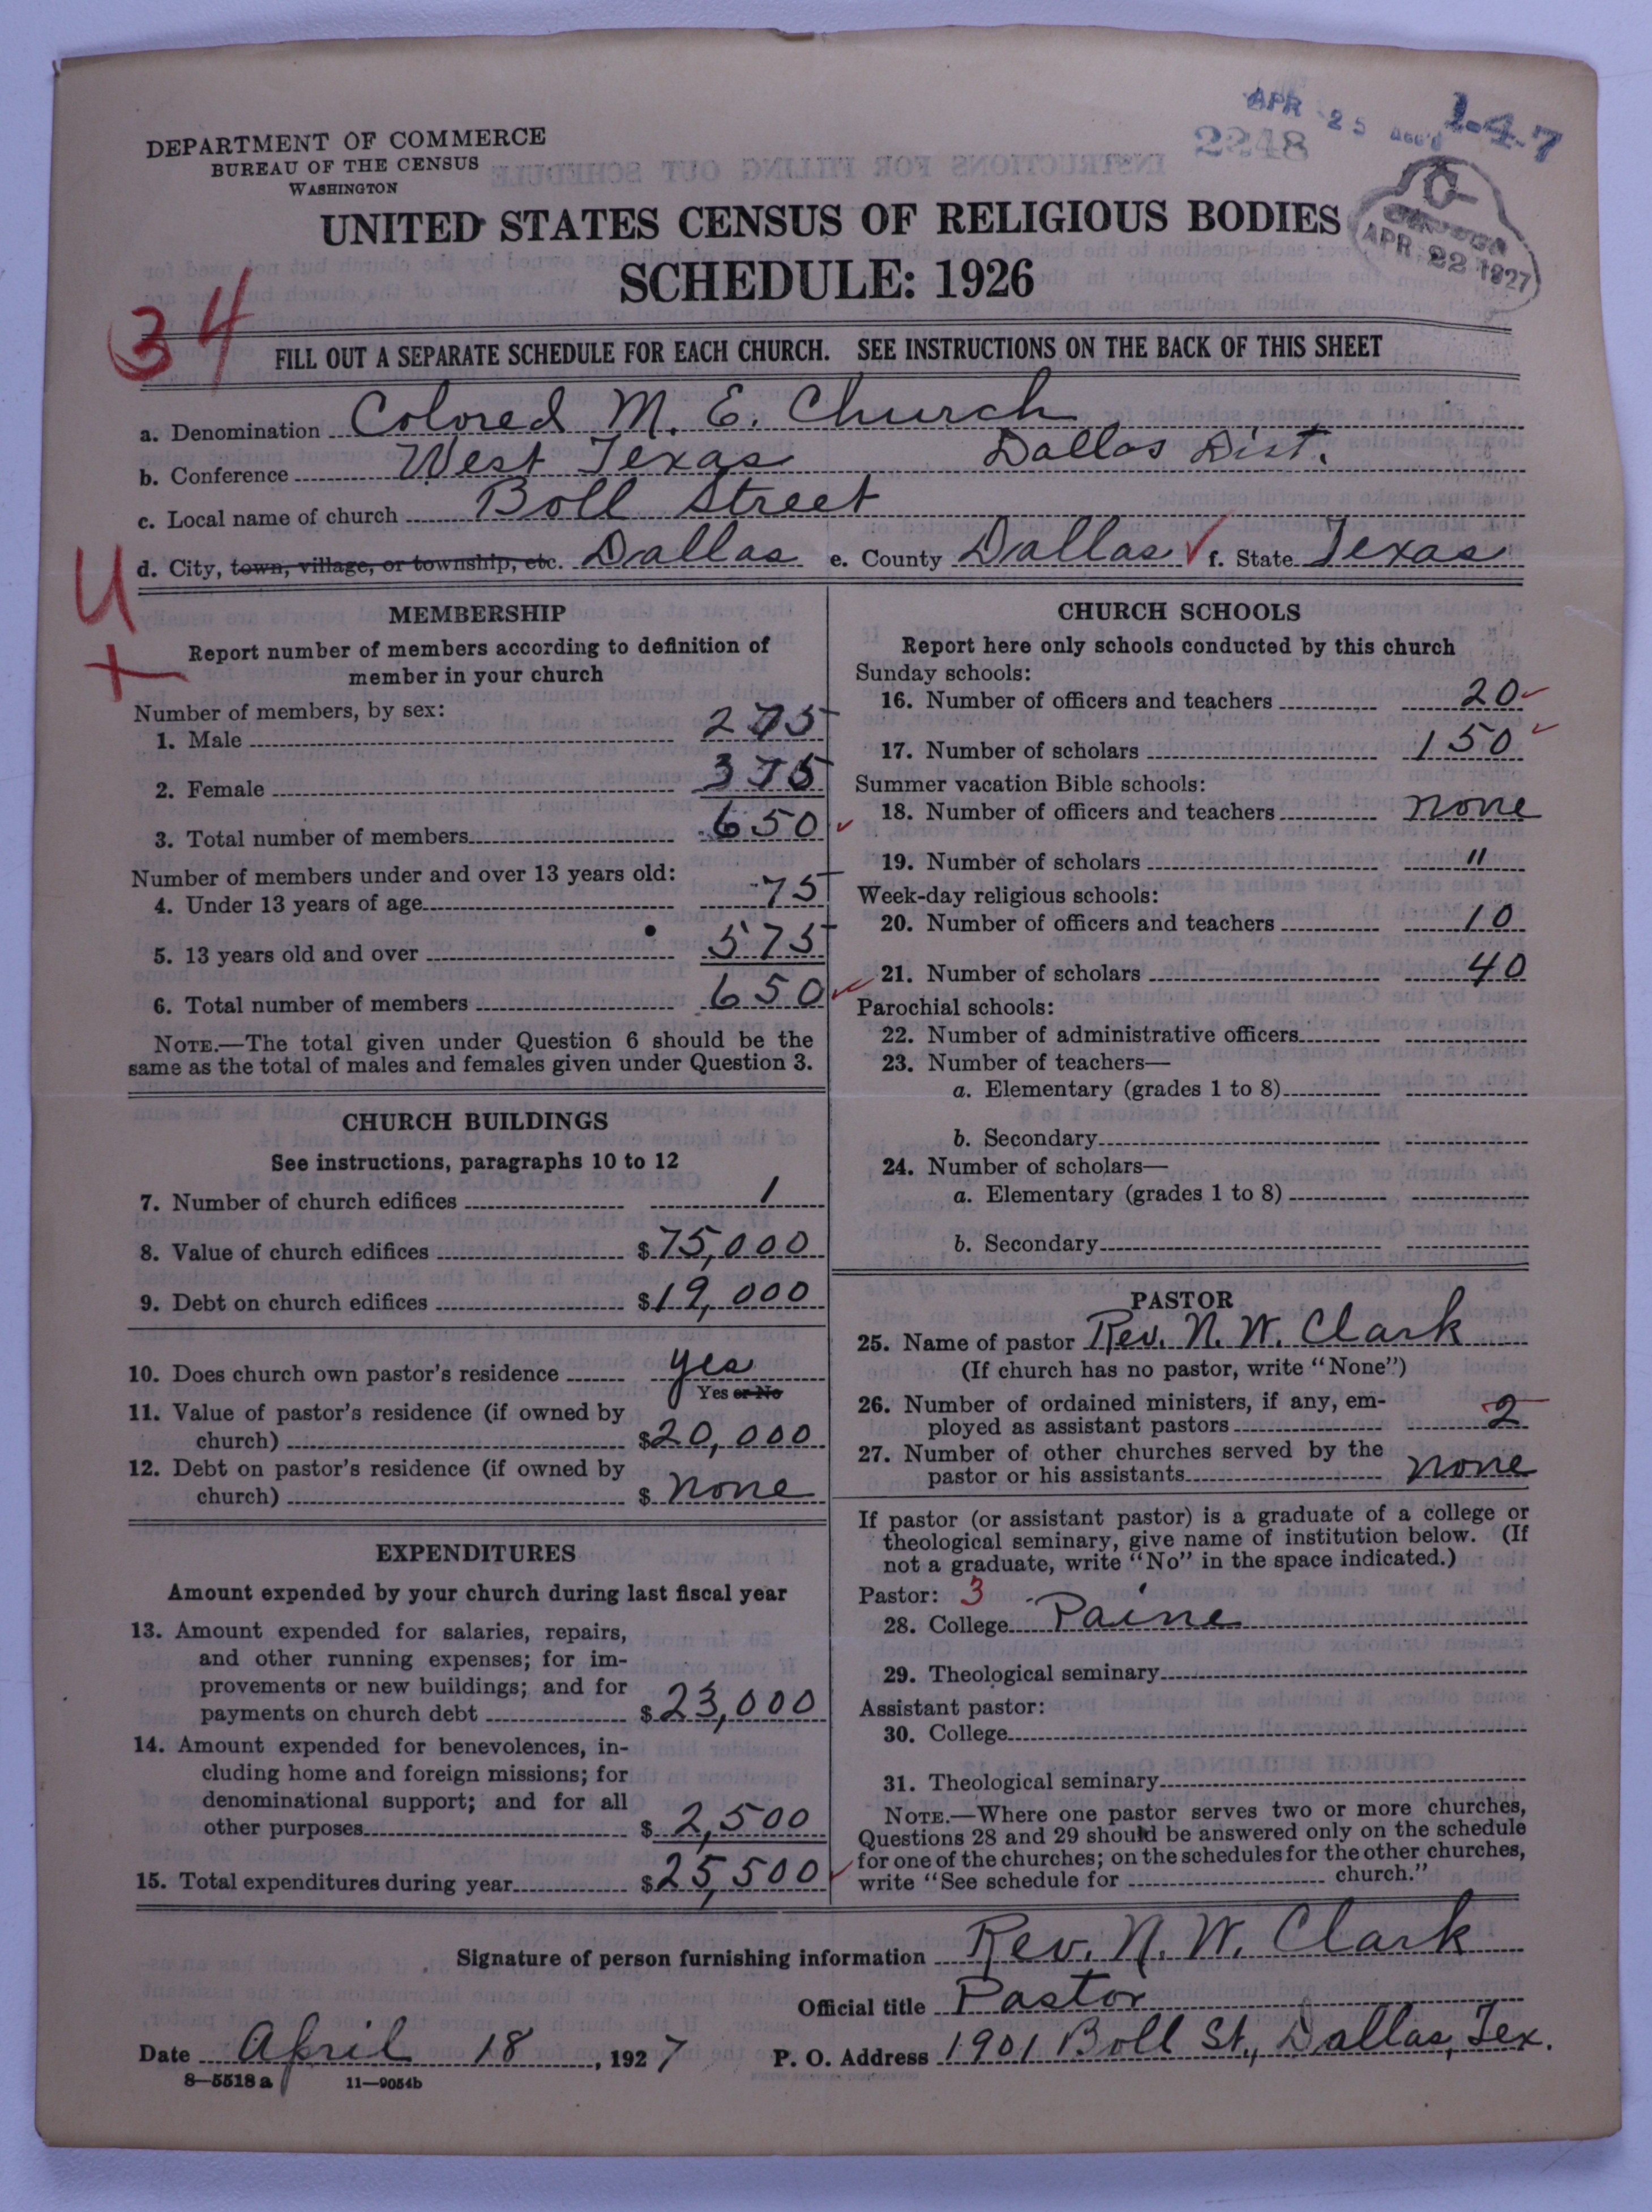 APR 25 Rec'd 1-4-7
2248
DEPARTMENT OF COMMERCE
BUREAU OF THE CENSUS
WASHINGTON
UNITED STATES CENSUS OF RELIGIOUS BODIES
SCHEDULE: 1926
C
CENSUS
APR 22 1927
34
FILL OUT A SEPARATE SCHEDULE FOR EACH CHURCH. SEE INSTRUCTIONS ON THE BACK OF THIS SHEET
a. Denomination Colored M. E. Church
b. Conference West Texas Dallas Dist.
c. Local name of church Boll Street
d. City, town, village, or township, etc. Dallas e. County Dallas ✓ f. State Texas
U
+
MEMBERSHIP
Report number of members according to definition of
member in your church
Number of members, by sex:
1. Male 275
2. Female 375
3. Total number of members 650 ✓
Number of members under and over 13 years old:
4. Under 13 years of age 75
5. 13 years old and over 575
6. Total number of members 650 ✓
NOTE.—The total given under Question 6 should be the
same as the total of males and females given under Question 3.
CHURCH BUILDINGS
See instructions, paragraphs 10 to 12
7. Number of church edifices 1
8. Value of church edifices $75,000
9. Debt on church edifices $19,000
10. Does church own pastor's residence yes
Yes or No
11. Value of pastor's residence (if owned by
church) $20,000
12. Debt on pastor's residence (if owned by
church) $ none
EXPENDITURES
Amount expended by your church during last fiscal year
13. Amount expended for salaries, repairs,
and other running expenses; for im-
provements or new buildings; and for
payments on church debt $23,000
14. Amount expended for benevolences, in-
cluding home and foreign missions; for
denominational support; and for all
other purposes $2,500
15. Total expenditures during year $25,500 ✓
CHURCH SCHOOLS
Report here only schools conducted by this church
Sunday schools:
16. Number of officers and teachers 20 ✓
17. Number of scholars 150 ✓
Summer vacation Bible schools:
18. Number of officers and teachers none
19. Number of scholars "
Week-day religious schools:
20. Number of officers and teachers 10
21. Number of scholars 40
Parochial schools:
22. Number of administrative officers
23. Number of teachers—
a. Elementary (grades 1 to 8)
b. Secondary
24. Number of scholars—
a. Elementary (grades 1 to 8)
b. Secondary
PASTOR
25. Name of pastor Rev. N. W. Clark
(If church has no pastor, write "None")
26. Number of ordained ministers, if any, em-
ployed as assistant pastors 2
27. Number of other churches served by the
pastor or his assistants none
If pastor (or assistant pastor) is a graduate of a college or
theological seminary, give name of institution below. (If
not a graduate, write "No" in the space indicated.)
Pastor: 3
28. College Paine
29. Theological seminary
Assistant pastor:
30. College
31. Theological seminary
NOTE.—Where one pastor serves two or more churches,
Questions 28 and 29 should be answered only on the schedule
for one of the churches; on the schedules for the other churches,
write "See schedule for church."
Signature of person furnishing information Rev. N. W. Clark
Official title Pastor
Date April 18, 1927 P. O. Address 1901 Boll St., Dallas, Tex.
8—5518 a 11—9054b